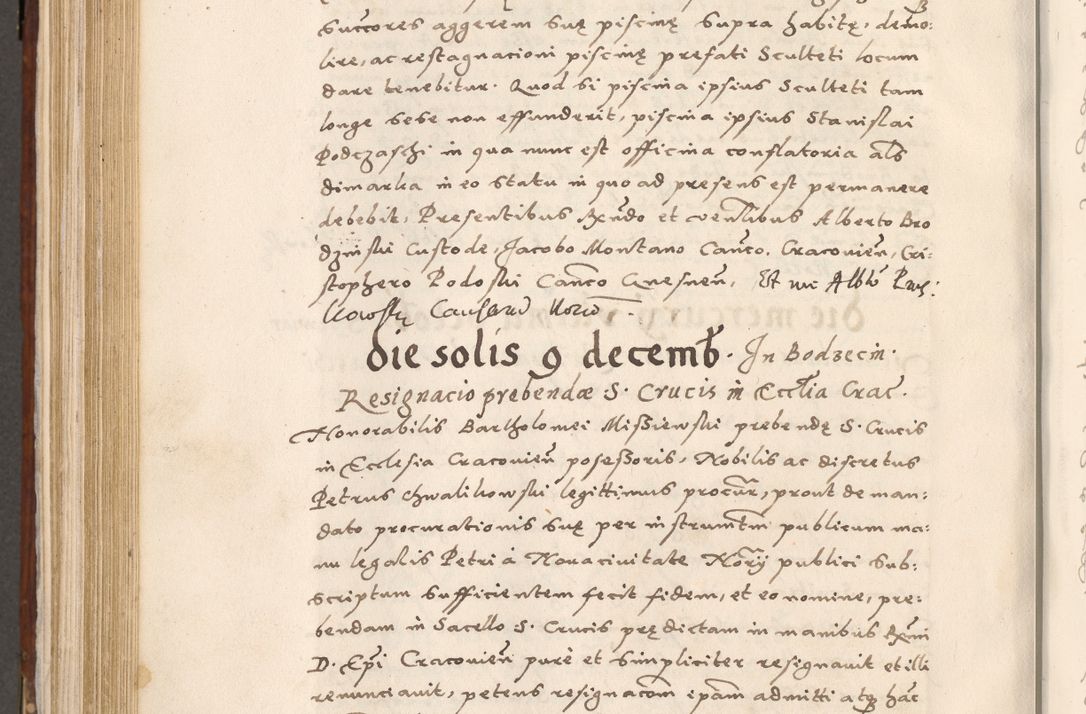 succores aggerem suę piscinę supra habitę, demo:
lire, ac restagnacioni piscinę prefati Sculteti locum
dare tenebitur. Quod si piscina ipsius Sculteti tam
longe sese non effunderit, piscina ipsius Stanislai
Podczaschi in qua nunc est officina conflatoria als
dimarka in eo statu in quo ad presens est permanere
debebit, Presentibus Rndo et venlibus Alberto Bro
dzinski Custode, Jacobo Montano Canco. Cracovien, Cri:
stophero Podoski Canco Gnesnen, Et me Albto
die solis 9 decemb. In Bodzecin.
Resignacio prebendæ S. Crucis in Ecclia Crac.
Honorabilis Bartholomei Mißiewski prebendę S. Crucis
in Ecclesia Cracovien poseßoris, Nobilis ac discretus
Petrus Chwalikowski legittimus procur, prout de man:
dato procurationis suę per instrumtm publicum ma:
nu legalis Petri á Novacivitate Nory publici sub:
scriptum sufficientem fecit fidem, et eo nomine, pre:
bendam in Sacello S. Crucis prędictam in manibus Rmi
D. Epi Cracovien purè et simpliciter resignavit et illi
renunciavit, petens resignacom ipam admitti atq hac